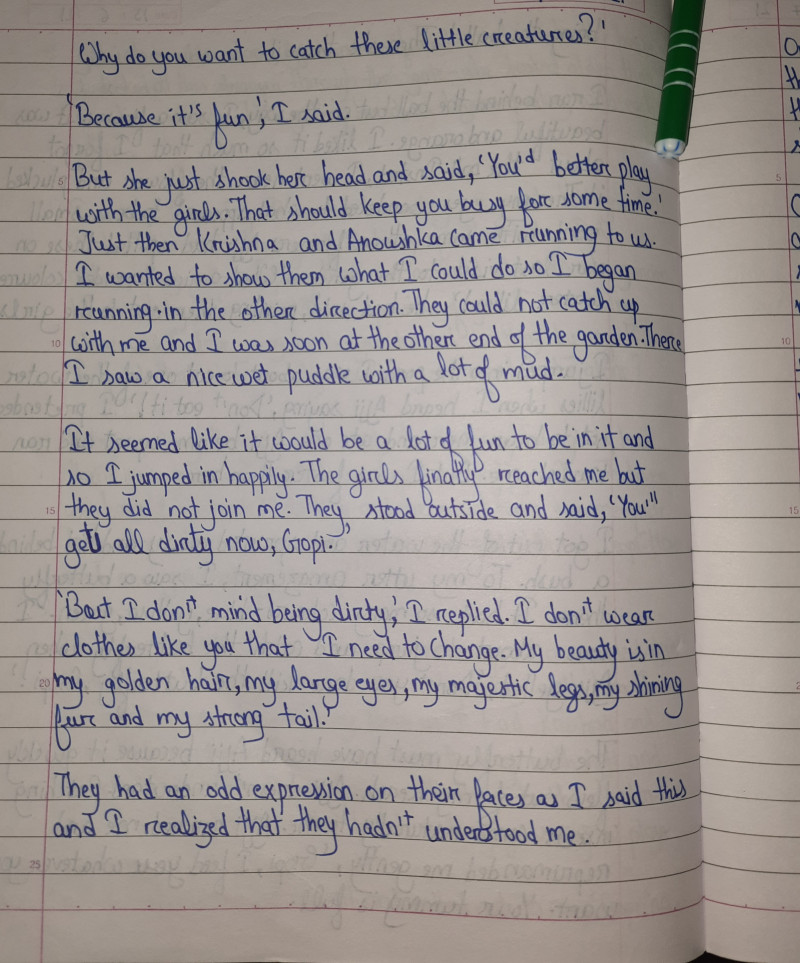 Why do you want to catch these little creatures?'
'Because it's fun', I said.
But she just shook her head and said, 'You'd better play
with the girls. That should keep you busy for some time.'
Just then Krishna and Anoushka came running to us.
I wanted to show them what I could do so I began
running in the other direction. They could not catch up
with me and I was soon at the other end of the garden. There
I saw a nice wet puddle with a lot of mud.
It seemed like it would be a lot of fun to be in it and
so I jumped in happily. The girls finally reached me but
they did not join me. They stood outside and said, 'You'll
get all dirty now, Gopi.'
'But I don't mind being dirty,' I replied. I don't wear
clothes like you that I need to change. My beauty is in
my golden hair, my large eyes, my majestic legs, my shining
fur and my strong tail.'
They had an odd expression on their faces as I said this
and I realized that they hadn't understood me.